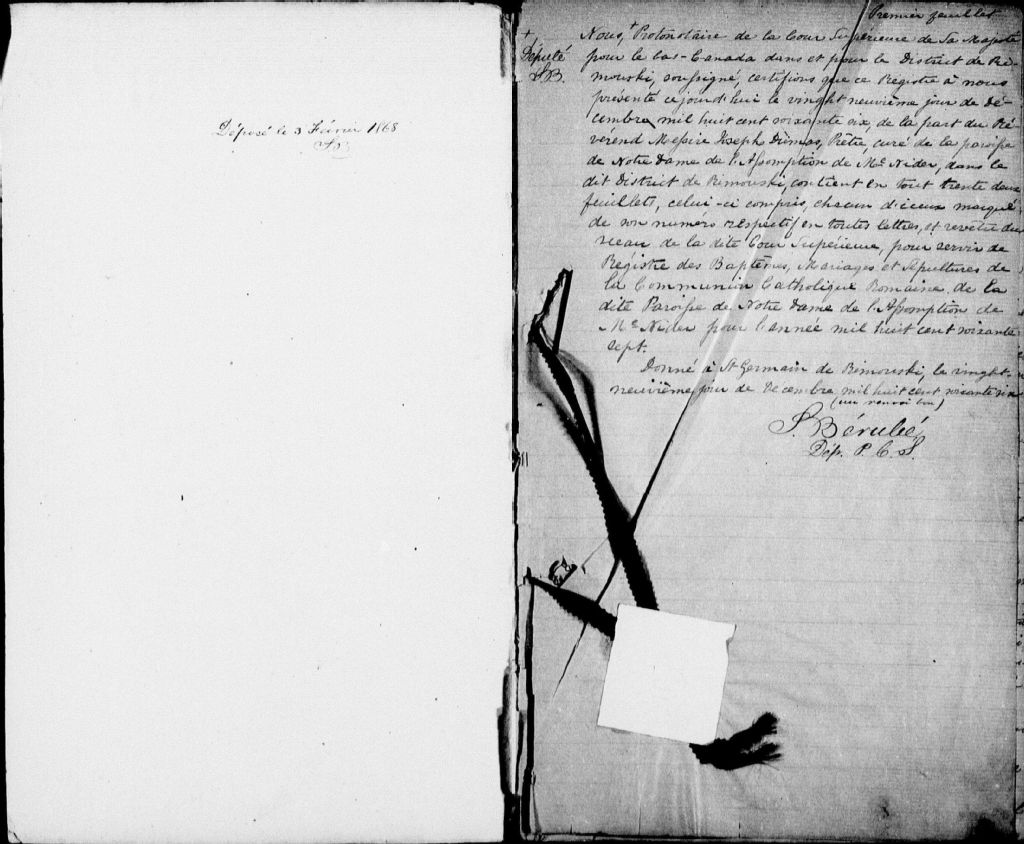 Déposé le 3 Février 1868
Premier feuillet
+
Député
Nous, + Protonotaire de la Cour Supérieure de Sa Majesté
pour le bas-Canada dans et pour le District de Ri-
mouski, soussigné, certifions que ce Registre à nous
présenté ce jourd'hui le vinght neuvième jour de Dé-
cembre mil huit cent soixante six, de la part du Ré-
vérend Messire Joseph Dumas, Prêtre, curé de la paroisse
de Notre Dame de l'Assomption de Mc Nider, dans le
dit District de Rimouski, contient en tout trente deux
feuillets, celui-ci compris, chacun d'iceux marqué
de son numéro respectif en toutes lettres, et revêtu du
sceau de la dite Cour Supérieure, pour servir de
Registre des Baptêmes, Mariages et Sépultures de
la Communion Catholique Romaine de la
dite Paroisse de Notre Dame de l'Assomption de
Mc Nider pour l'année mil huit cent soixante
sept.
Donné à St Germain de Rimouski, le vinght-
neuvième jour de Décembre mil huit cent soixante six
(un renvoi bon)
Dép. P. C. S.